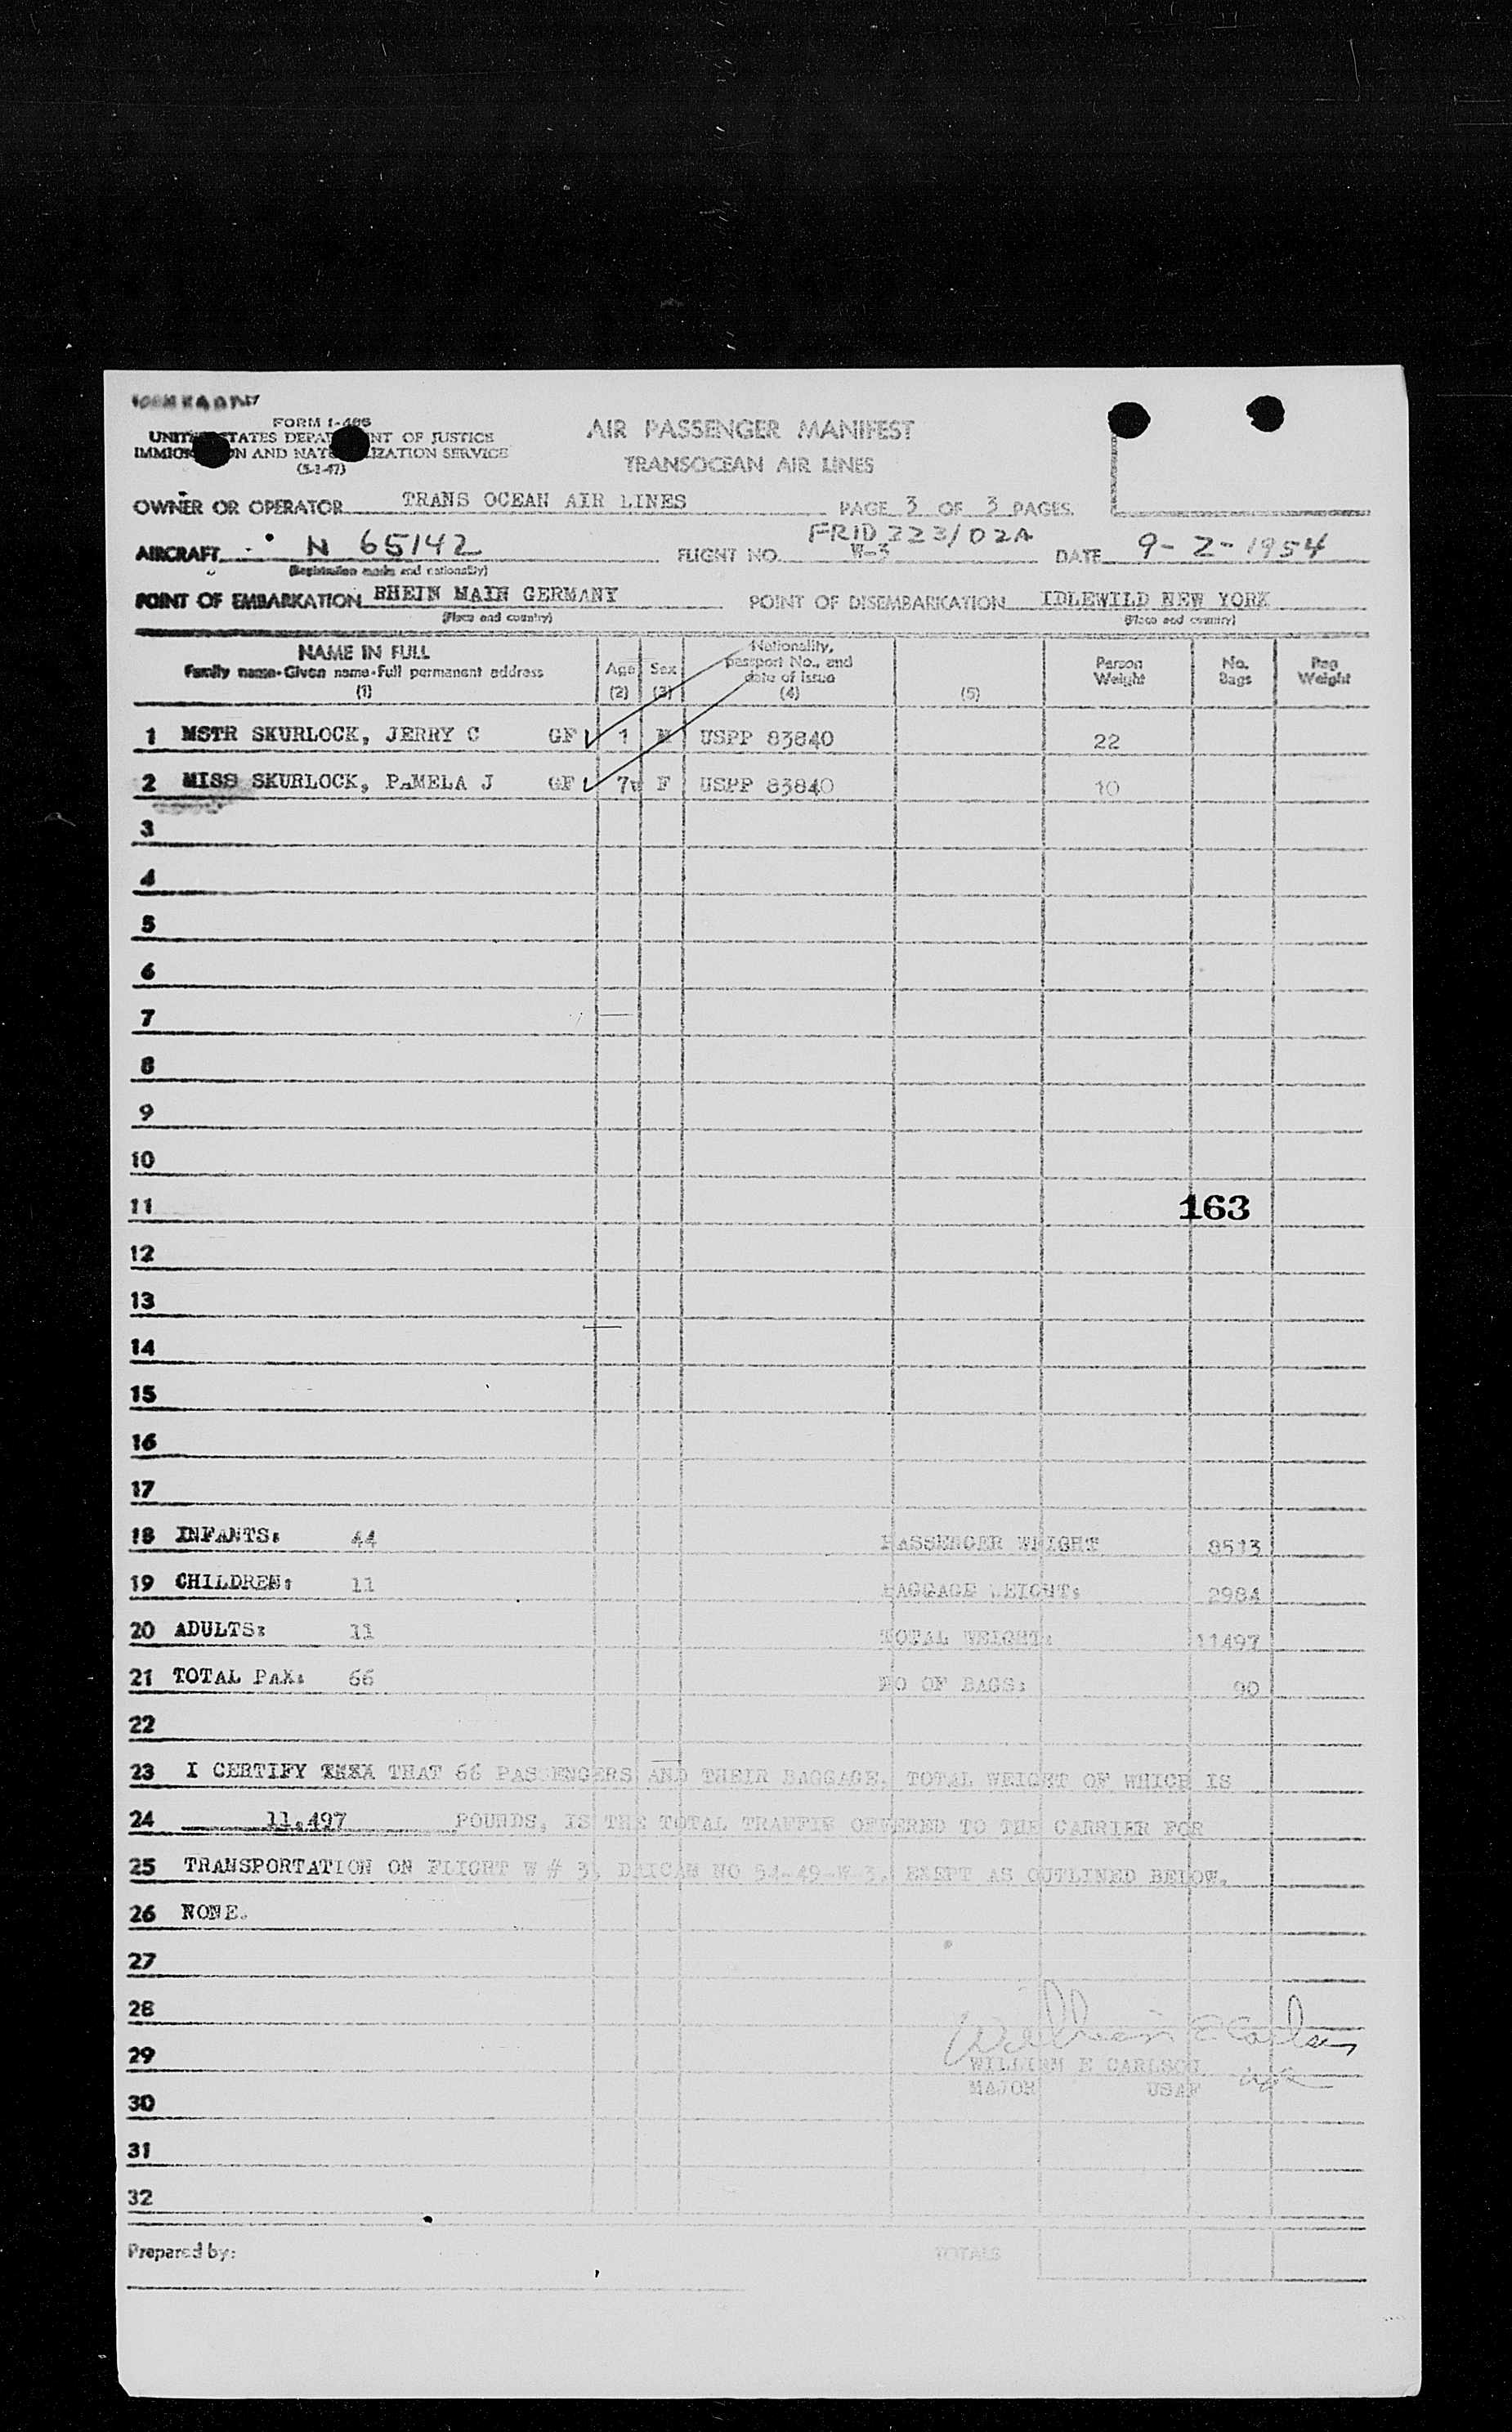 FORM I-466
UNITED STATES DEPARTMENT OF JUSTICE
IMMIGRATION AND NATURALIZATION SERVICE
(5-1-47)
AIR PASSENGER MANIFEST
TRANSOCEAN AIR LINES
OWNER OR OPERATOR TRANS OCEAN AIR LINES PAGE 3 OF 3 PAGES
FRID 223/02A
AIRCRAFT N 65142 FLIGHT NO. W-3 DATE 9-2-1954
(Registration marks and nationality)
POINT OF EMBARKATION RHEIN MAIN GERMANY POINT OF DISEMBARKATION IDLEWILD NEW YORK
(Place and country) (Place and country)
NAME IN FULL Family name-Given name-Full permanent address (1) Age (2) Sex (3) Nationality, passport No., and date of issue (4) (5) Person Weight No. Bags Bag Weight
1 MSTR SKURLOCK, JERRY C GF 1 M USPP 83840 22
2 MISS SKURLOCK, PAMELA J GF 7W F USPP 83840 10
3
4
5
6
7
8
9
10
11 163
12
13
14
15
16
17
18 INFANTS: 44 PASSENGER WEIGHT 8513
19 CHILDREN: 11 BAGGAGE WEIGHT: 2984
20 ADULTS: 11 TOTAL WEIGHT: 11497
21 TOTAL PAX: 66 NO OF BAGS: 90
22
23 I CERTIFY THAT 66 PASSENGERS AND THEIR BAGGAGE, TOTAL WEIGHT OF WHICH IS
24 11,497 POUNDS, IS THE TOTAL TRAFFIC OFFERED TO THE CARRIER FOR
25 TRANSPORTATION ON FLIGHT W # 3, NO 54-49-W-3. EXEPT AS OUTLINED BELOW.
26 NONE.
27
28
29 William E Carlson
WILLIAM E CARLSON
30 MAJOR USAF
31
32
Prepared by: TOTALS